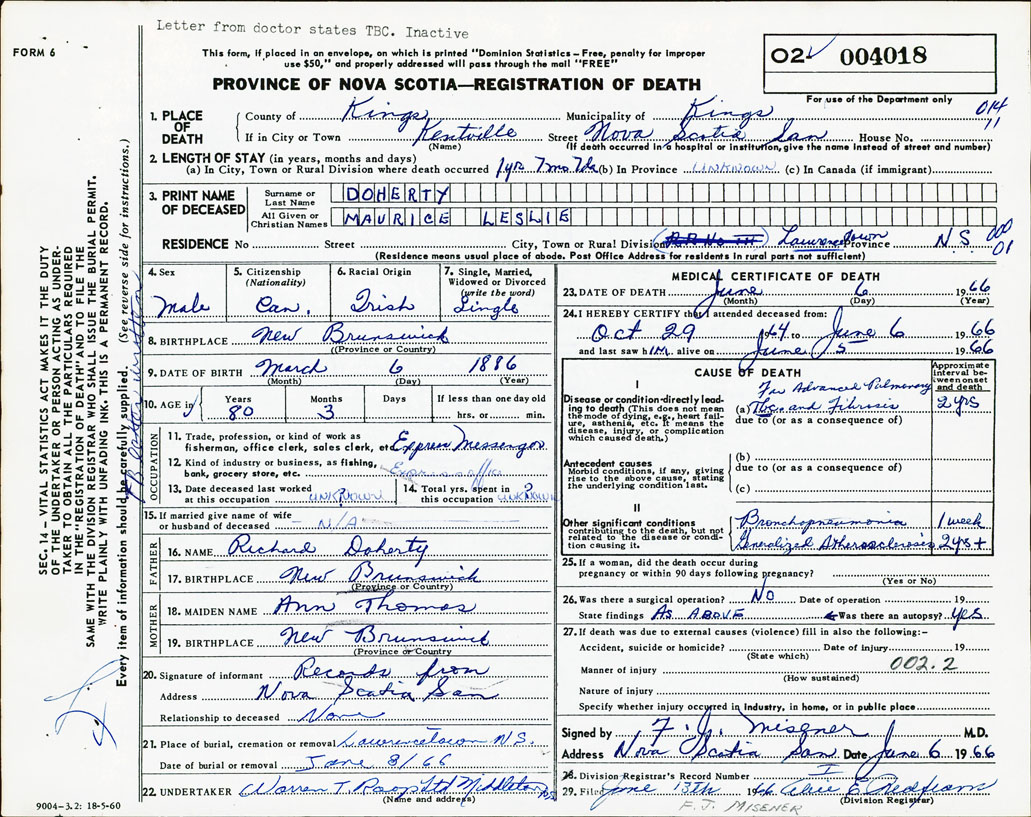 Letter from doctor states TBC. Inactive
FORM 6
This form, if placed in an envelope, on which is printed "Dominion Statistics – Free, penalty for improper
use $50," and properly addressed will pass through the mail "FREE"
02 004018
PROVINCE OF NOVA SCOTIA—REGISTRATION OF DEATH
For use of the Department only
014
11
1. PLACE OF DEATH
County of Kings Municipality of Kings
If in City or Town Kentville Street Nova Scotia San House No.
(Name) (If death occurred in a hospital or institution, give the name instead of street and number)
2. LENGTH OF STAY (in years, months and days)
(a) In City, Town or Rural Division where death occurred 1 yr 7 mo 7 da (b) In Province UNKNOWN (c) In Canada (if immigrant)
3. PRINT NAME OF DECEASED
Surname or Last Name DOHERTY
All Given or Christian Names MAURICE LESLIE
RESIDENCE No Street City, Town or Rural Division Lawrencetown Province N S
000
01
(Residence means usual place of abode. Post Office Address for residents in rural parts not sufficient)
4. Sex
Male
5. Citizenship (Nationality)
Can.
6. Racial Origin
Irish
7. Single, Married, Widowed or Divorced (write the word)
Single
8. BIRTHPLACE New Brunswick
(Province or Country)
9. DATE OF BIRTH March 6 1886
(Month) (Day) (Year)
10. AGE in Years 80 Months 3 Days If less than one day old
hrs. or min.
OCCUPATION
11. Trade, profession, or kind of work as
fisherman, office clerk, sales clerk, etc. Express Messenger
12. Kind of industry or business, as fishing,
bank, grocery store, etc. Express office
13. Date deceased last worked
at this occupation UNKNOWN
14. Total yrs. spent in
this occupation UNKNOWN
15. If married give name of wife
or husband of deceased - N/A -
FATHER
16. NAME Richard Doherty
17. BIRTHPLACE New Brunswick
(Province or Country)
MOTHER
18. MAIDEN NAME Ann Thomas
19. BIRTHPLACE New Brunswick
(Province or Country)
20. Signature of informant Records from
Address Nova Scotia San
Relationship to deceased None
21. Place of burial, cremation or removal Lawrencetown N.S.
Date of burial or removal June 8/66
22. UNDERTAKER Warren T. Roop Ltd Middleton NS
(Name and address)
9004-3.2: 18-5-60
MEDICAL CERTIFICATE OF DEATH
23. DATE OF DEATH June 6 1966
(Month) (Day) (Year)
24. I HEREBY CERTIFY that I attended deceased from:
Oct 29 1964 to June 6 1966
and last saw him alive on June 5 1966
CAUSE OF DEATH
Approximate interval between onset and death
I
Disease or condition directly leading to death (This does not mean the mode of dying, e.g., heart failure, asthenia, etc. It means the disease, injury, or complication which caused death.)
Far Advanced Pulmonary
(a) Tbc and Fibrosis 2 yrs
due to (or as a consequence of)
Antecedent causes
Morbid conditions, if any, giving rise to the above cause, stating the underlying condition last.
(b)
due to (or as a consequence of)
(c)
II
Other significant conditions
contributing to the death, but not related to the disease or condition causing it.
Bronchopneumonia 1 week
Generalized Atherosclerosis 2 yrs +
25. If a woman, did the death occur during
pregnancy or within 90 days following pregnancy?
(Yes or No)
26. Was there a surgical operation? NO Date of operation 19
State findings AS ABOVE Was there an autopsy? Yes
27. If death was due to external causes (violence) fill in also the following:–
Accident, suicide or homicide? Date of injury 19
(State which)
Manner of injury 002.2
(How sustained)
Nature of injury
Specify whether injury occurred in industry, in home, or in public place
Signed by F. J. Misener M.D.
Address Nova Scotia San Date June 6 1966
28. Division Registrar's Record Number I
29. Filed June 13th 1966 Alice E.
(Division Registrar)
F. J. MISENER
SEC. 14 – VITAL STATISTICS ACT MAKES IT THE DUTY
OF THE UNDERTAKER OR PERSON ACTING AS UNDER-
TAKER TO OBTAIN ALL THE PARTICULARS REQUIRED
IN THE "REGISTRATION OF DEATH" AND TO FILE THE
SAME WITH THE DIVISION REGISTRAR WHO SHALL ISSUE THE BURIAL PERMIT.
WRITE PLAINLY WITH UNFADING INK. THIS IS A PERMANENT RECORD.
Every item of information should be carefully supplied. (See reverse side for instructions.)